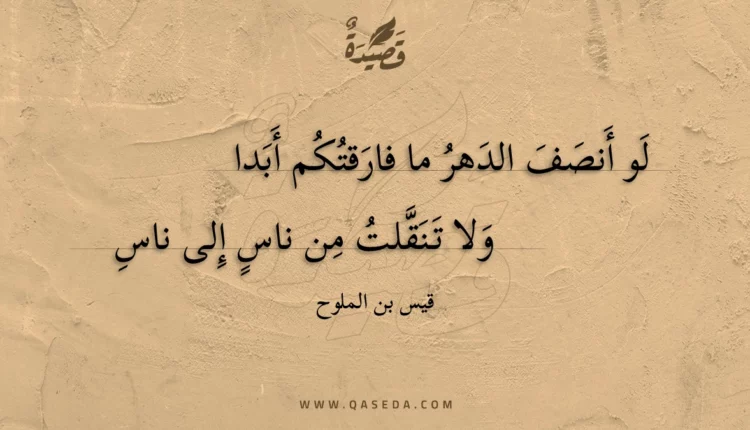 قَصِيْدَةٌ
لَو أَنصَفَ الدَهرُ ما فارَقتُكُم أَبَدا
وَلا تَنَقَّلتُ مِن ناسٍ إِلى ناسِ
قيس بن الملوح
WWW.QASEDA.COM